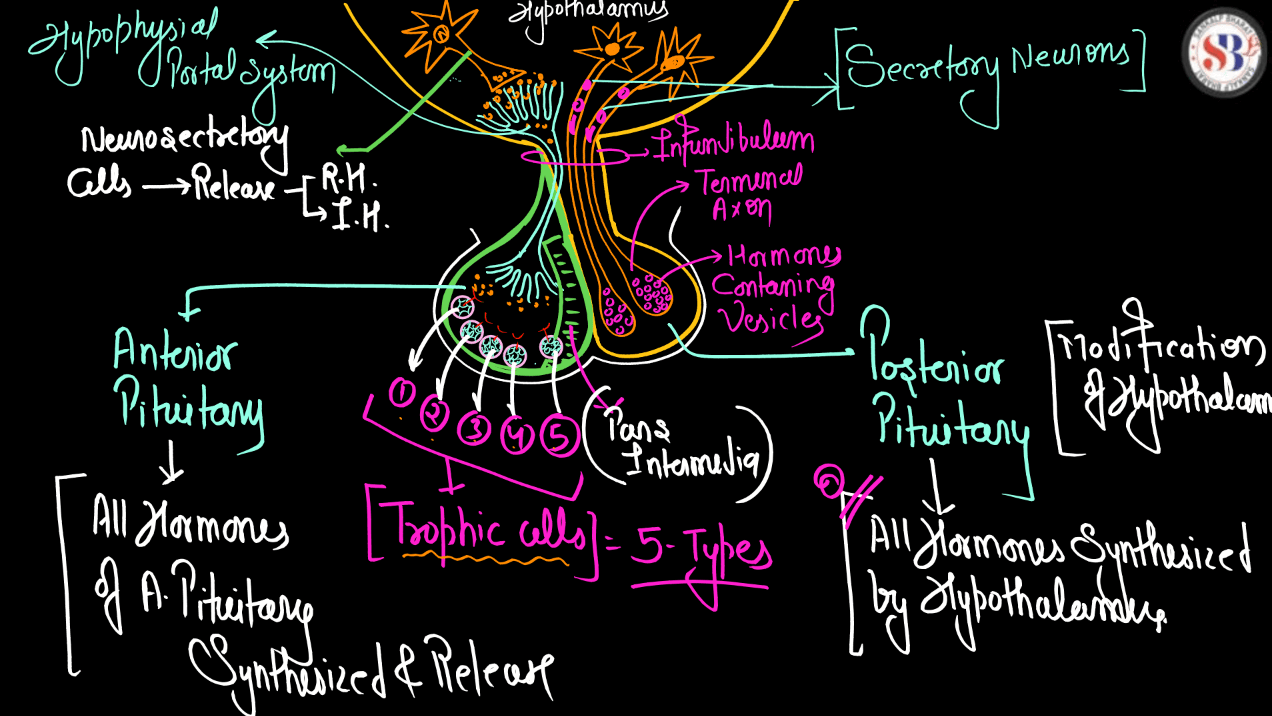 Hypothalamus
Hypophysial
Portal System
[Secretory Neurons]
SB
Neurosectretory
Cells → Release
R.H.
I.H.
Infundibuleum
Terminal
Axon
Hormones
Contaning
Vesicles
Anterior
Pituitary
Posterior
Pituitary
Modification
of Hypothalam
1
2
3
4
5
(Pars
Intermedia)
[Trophic cells] = 5-Types
All Hormones
of A. Pituitary
Synthesized & Release
All Hormones Synthesized
by Hypothalamus